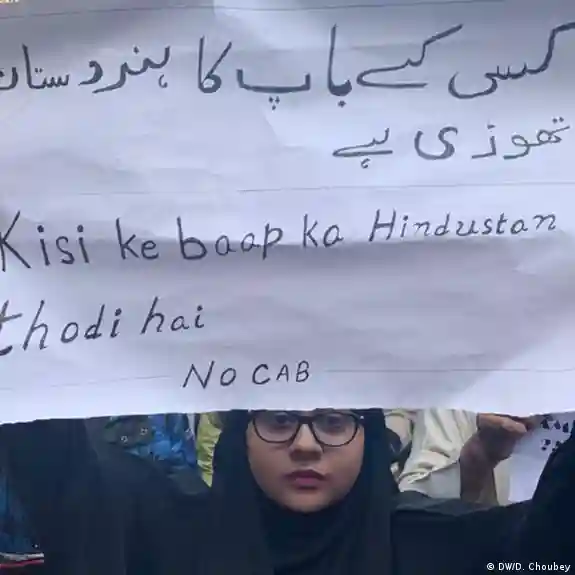 کسی کے باپ کا ہندوستان
تھوڑی ہے
Kisi ke baap ka Hindustan
thodi hai
NO CAB
© DW/D. Choubey